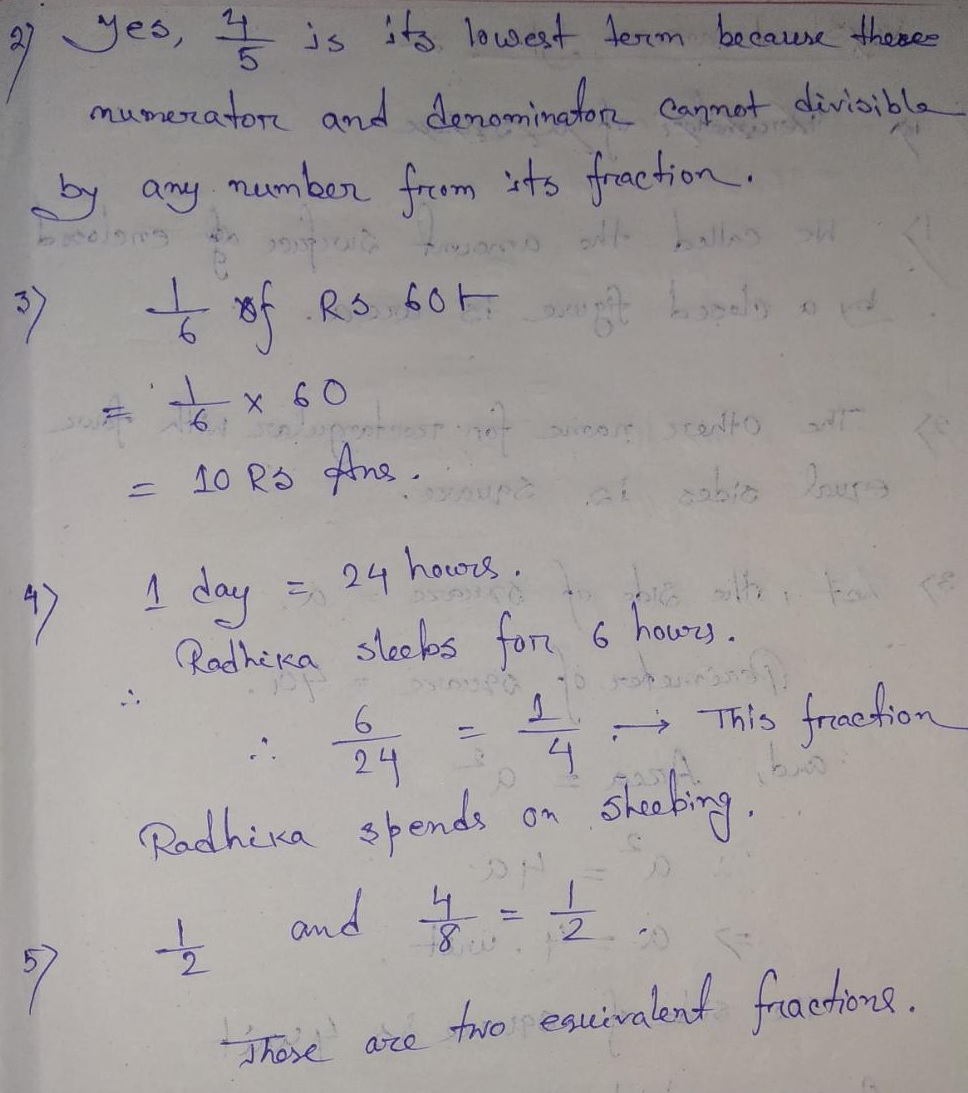 2) Yes, 4/5 is its lowest term because these
numerator and denominator cannot divisible
by any number from its fraction.
3) 1/6 of Rs 60
= 1/6 × 60
= 10 Rs Ans.
4) 1 day = 24 hours.
Radhika sleebs for 6 hours.
∴
∴ 6/24 = 1/4 → This fraction
Radhika spends on sheebing.
5) 1/2 and 4/8 = 1/2.
These are two equivalent fractions.